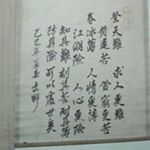 登天難 求人更難
黄連苦 貧窮更苦
春冰薄 人情更薄
江湖險 人心更險
知其難 其苦 耐其薄
防其險 可以處世矣
己巳年